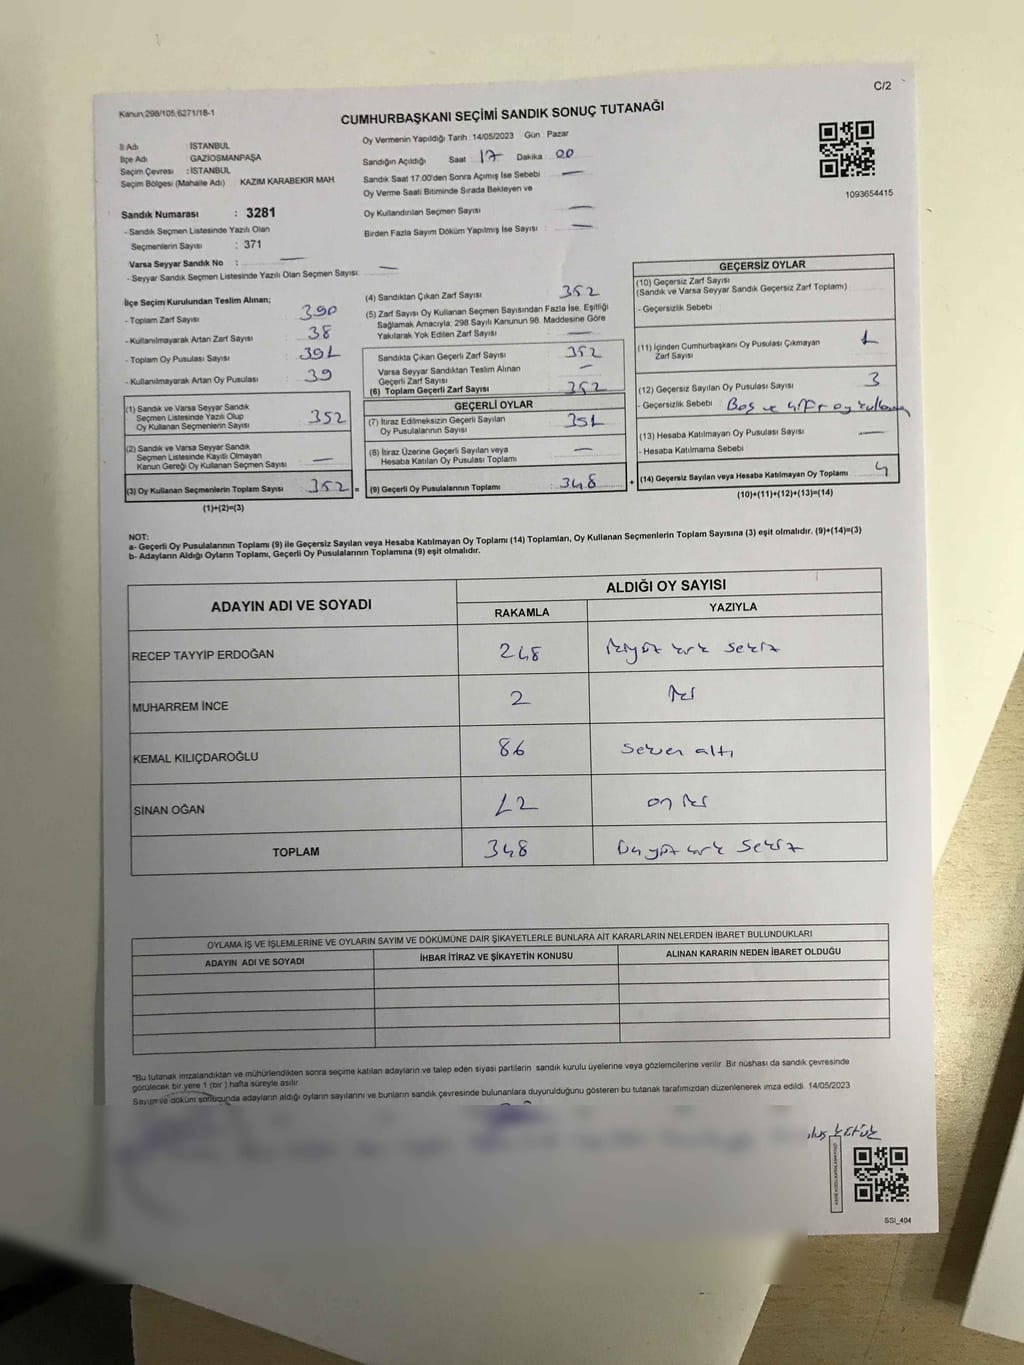 C/2
Kanun:298/105,6271/18-1
CUMHURBAŞKANI SEÇİMİ SANDIK SONUÇ TUTANAĞI
İl Adı : İSTANBUL
İlçe Adı : GAZİOSMANPAŞA
Seçim Çevresi : İSTANBUL
Seçim Bölgesi (Mahalle Adı) KAZIM KARABEKİR MAH
Sandık Numarası : 3281
- Sandık Seçmen Listesinde Yazılı Olan
Seçmenlerin Sayısı : 371
Varsa Seyyar Sandık No : —
- Seyyar Sandık Seçmen Listesinde Yazılı Olan Seçmen Sayısı: —
Oy Vermenin Yapıldığı Tarih :14/05/2023 Gün : Pazar
Sandığın Açıldığı Saat 17 Dakika 00
Sandık Saat 17:00'den Sonra Açılmış İse Sebebi —
Oy Verme Saati Bitiminde Sırada Bekleyen ve
Oy Kullandırılan Seçmen Sayısı —
Birden Fazla Sayım Döküm Yapılmış İse Sayısı : —
1093654415
İlçe Seçim Kurulundan Teslim Alınan;
- Toplam Zarf Sayısı : 390
- Kullanılmayarak Artan Zarf Sayısı : 38
- Toplam Oy Pusulası Sayısı : 391
- Kullanılmayarak Artan Oy Pusulası : 39
(1) Sandık ve Varsa Seyyar Sandık
Seçmen Listesinde Yazılı Olup
Oy Kullanan Seçmenlerin Sayısı : 352
(2) Sandık ve Varsa Seyyar Sandık
Seçmen Listesinde Kayıtlı Olmayan
Kanun Gereği Oy Kullanan Seçmen Sayısı : —
(3) Oy Kullanan Seçmenlerin Toplam Sayısı : 352 =
(1)+(2)=(3)
(4) Sandıktan Çıkan Zarf Sayısı : 352
(5) Zarf Sayısı Oy Kullanan Seçmen Sayısından Fazla İse, Eşitliği
Sağlamak Amacıyla; 298 Sayılı Kanunun 98. Maddesine Göre
Yakılarak Yok Edilen Zarf Sayısı : —
Sandıkta Çıkan Geçerli Zarf Sayısı : 352
Varsa Seyyar Sandıktan Teslim Alınan
Geçerli Zarf Sayısı : —
(6) Toplam Geçerli Zarf Sayısı : 352
GEÇERLİ OYLAR
(7) İtiraz Edilmeksizin Geçerli Sayılan
Oy Pusulalarının Sayısı : 351
(8) İtiraz Üzerine Geçerli Sayılan veya
Hesaba Katılan Oy Pusulası Toplamı : —
(9) Geçerli Oy Pusulalarının Toplamı : 348 +
GEÇERSİZ OYLAR
(10) Geçersiz Zarf Sayısı :
(Sandık ve Varsa Seyyar Sandık Geçersiz Zarf Toplamı)
- Geçersizlik Sebebi
(11) İçinden Cumhurbaşkanı Oy Pusulası Çıkmayan
Zarf Sayısı : 1
(12) Geçersiz Sayılan Oy Pusulası Sayısı : 3
- Geçersizlik Sebebi Boş ve çift oy
(13) Hesaba Katılmayan Oy Pusulası Sayısı : —
- Hesaba Katılmama Sebebi
(14) Geçersiz Sayılan veya Hesaba Katılmayan Oy Toplamı : 4
(10)+(11)+(12)+(13)=(14)
NOT:
a- Geçerli Oy Pusulalarının Toplamı (9) ile Geçersiz Sayılan veya Hesaba Katılmayan Oy Toplamı (14) Toplamları, Oy Kullanan Seçmenlerin Toplam Sayısına (3) eşit olmalıdır. (9)+(14)=(3)
b- Adayların Aldığı Oyların Toplamı, Geçerli Oy Pusulalarının Toplamına (9) eşit olmalıdır.
ADAYIN ADI VE SOYADI
ALDIĞI OY SAYISI
RAKAMLA YAZIYLA
RECEP TAYYİP ERDOĞAN 248 ikiyüz kırk sekiz
MUHARREM İNCE 2 iki
KEMAL KILIÇDAROĞLU 86 seksen altı
SİNAN OĞAN 12 on iki
TOPLAM 348 üçyüz kırk sekiz
OYLAMA İŞ VE İŞLEMLERİNE VE OYLARIN SAYIM VE DÖKÜMÜNE DAİR ŞİKAYETLERLE BUNLARA AİT KARARLARIN NELERDEN İBARET BULUNDUKLARI
ADAYIN ADI VE SOYADI İHBAR İTİRAZ VE ŞİKAYETİN KONUSU ALINAN KARARIN NEDEN İBARET OLDUĞU
*Bu tutanak imzalandıktan ve mühürlendikten sonra seçime katılan adayların ve talep eden siyasi partilerin sandık kurulu üyelerine veya gözlemcilerine verilir. Bir nüshası da sandık çevresinde
görülecek bir yere 1 (bir) hafta süreyle asılır.
Sayım ve döküm sonucunda adayların aldığı oyların sayılarını ve bunların sandık çevresinde bulunanlara duyurulduğunu gösteren bu tutanak tarafımızdan düzenlenerek imza edildi. 14/05/2023
SSI_404